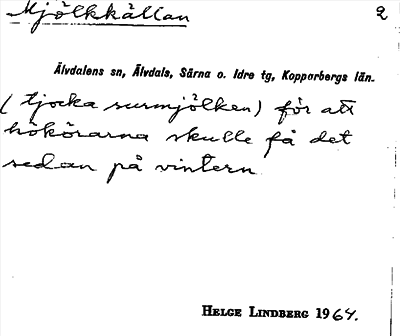 Mjölkkällan 2
Älvdalens sn, Älvdals, Särna o. Idre tg, Kopparbergs län.
(tjocka surmjölken) för att
hökörarna skulle få det
sedan på vintern
HELGE LINDBERG 1964.